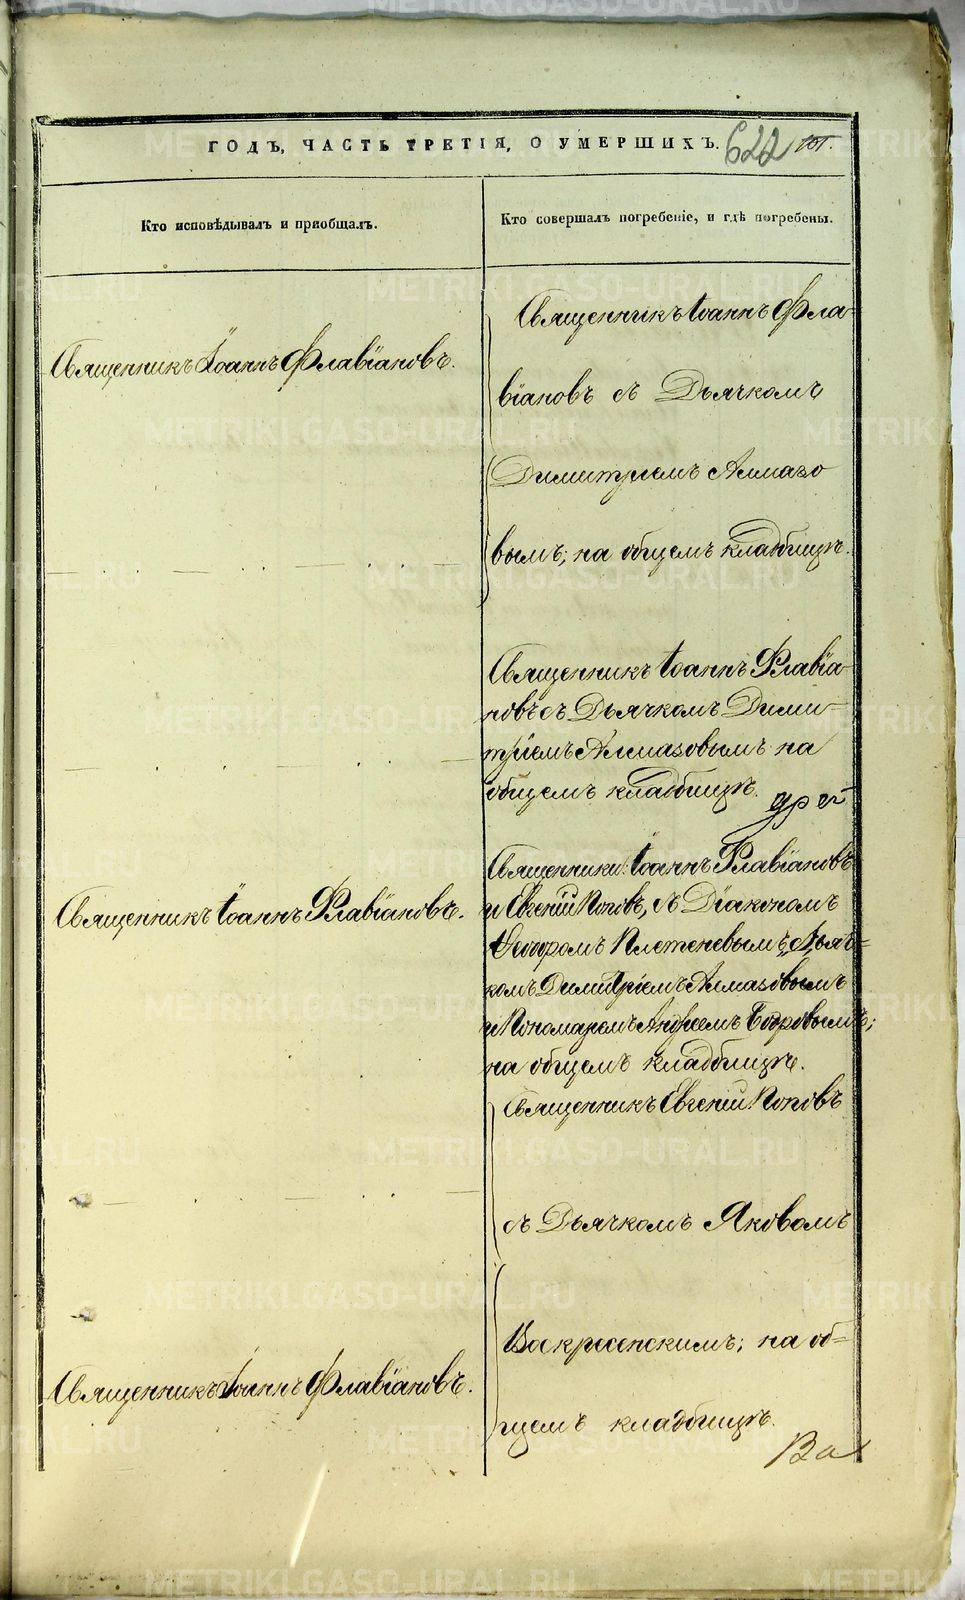 ГОДЪ, ЧАСТЬ ТРЕТІЯ, О УМЕРШИХЪ. 622
Кто исповѣдывалъ и пріобщалъ.
Кто совершалъ погребеніе, и гдѣ погребены.
Священникъ Іоаннъ Флавіановъ.
Священникъ Іоаннъ Фла-
віановъ съ Дьячкомъ
Димитріемъ Алмазо
вымъ; на общемъ кладбищѣ.
Священникъ Іоаннъ Флавіа-
новъ съ Дьячкомъ Дими-
тріемъ Алмазовымъ на
общемъ кладбищѣ.
Священникъ Іоаннъ Флавіановъ.
Священники: Іоаннъ Флавіановъ
и Евгеній Поповъ, съ Діакономъ
Ѳеодоромъ Плетеневымъ, Дьяч-
комъ Димитріемъ Алмазовымъ
и Пономаремъ Андреемъ Бобровымъ;
на общемъ кладбищѣ.
Священникъ Евгеній Поповъ
съ Дьячкомъ Яковомъ
Воскресенскимъ; на об-
щемъ кладбищѣ.
Священникъ Іоаннъ Флавіановъ.
METRIKI.GASO-URAL.RU